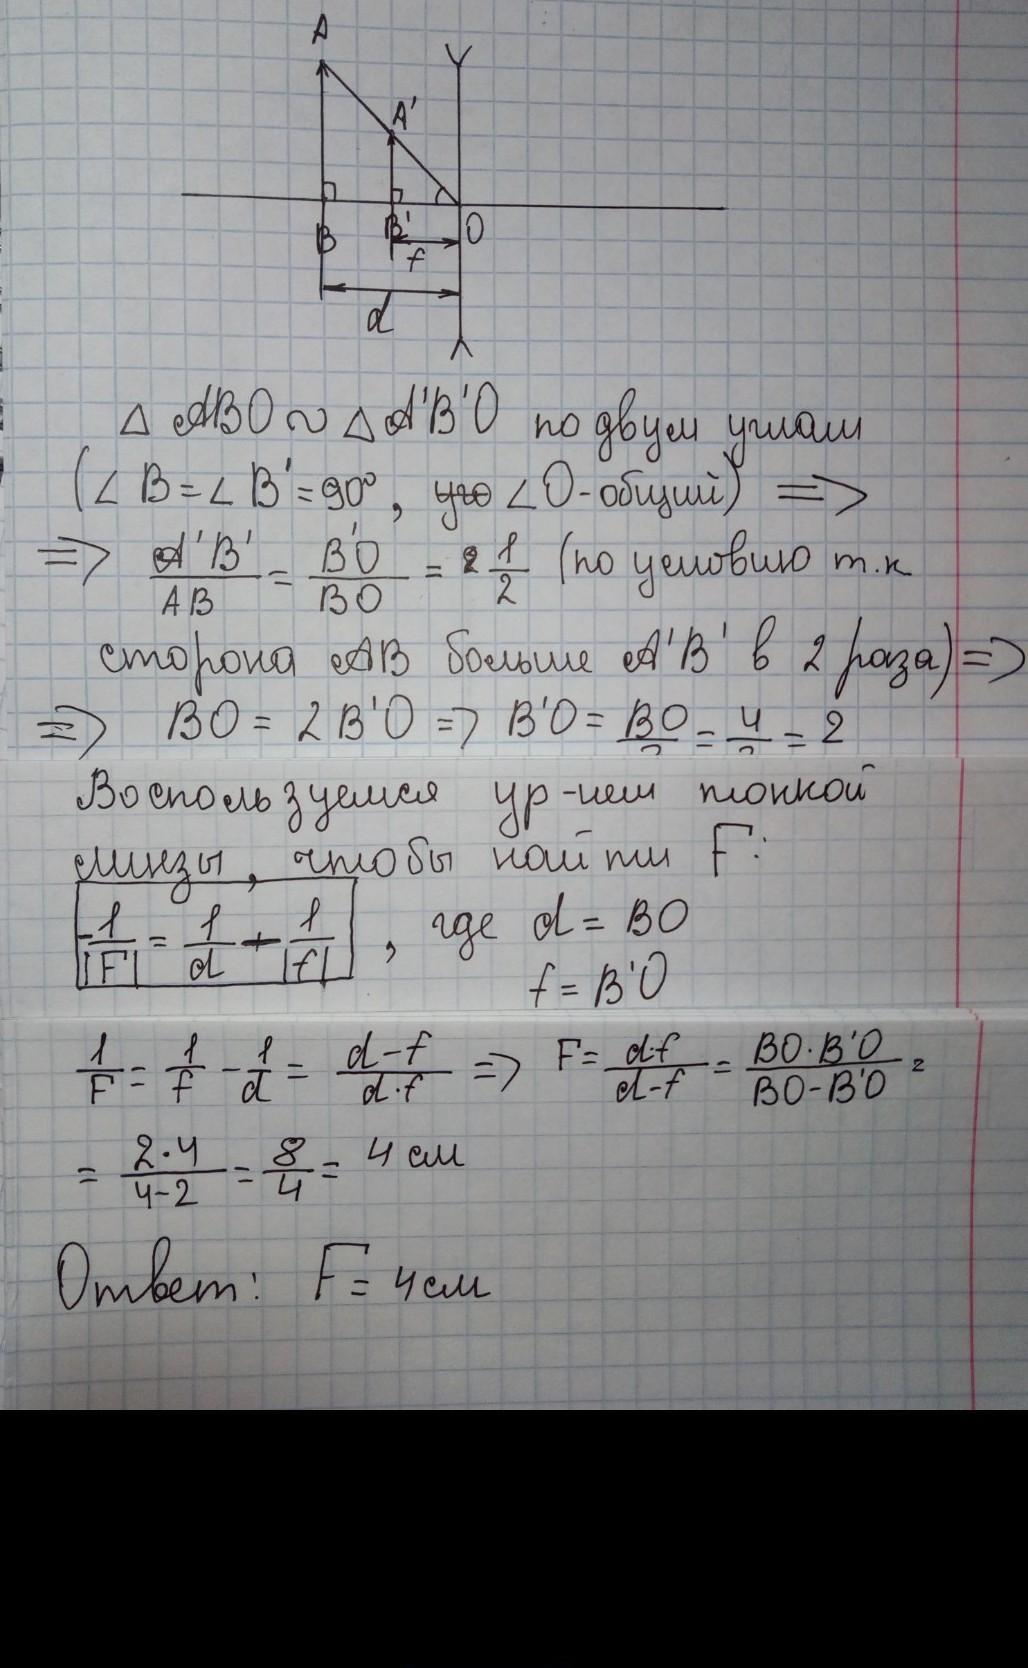 A
A'
B
B'
O
f
d
△ ABO ∾ △ A'B'O по двум углам
(∠B = ∠B' = 90°, ∠O - общий) =>
=> A'B'/AB = B'O/BO = 1/2 (по условию т.к
сторона AB больше A'B' в 2 раза) =>
=> BO = 2B'O => B'O = BO/2 = 4/2 = 2
Воспользуемся ур-нем тонкой
линзы, чтобы найти F:
-1/|F| = 1/d - 1/|f| , где d = BO
f = B'O
1/F = 1/f - 1/d = d-f/d·f => F = d·f/d-f = BO·B'O/BO-B'O =
= 2·4/4-2 = 8/4 = 4 см
Ответ: F = 4 см